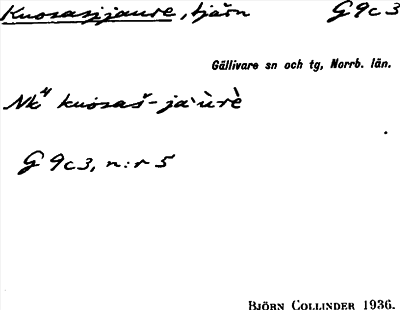 Kuosasjjaure, tjärn G 9c 3
Gällivare sn och tg, Norrb. län.
Nk⁴ kuosaš-ja`ùrè
G 9c3, n:r 5
BJÖRN COLLINDER 1936.